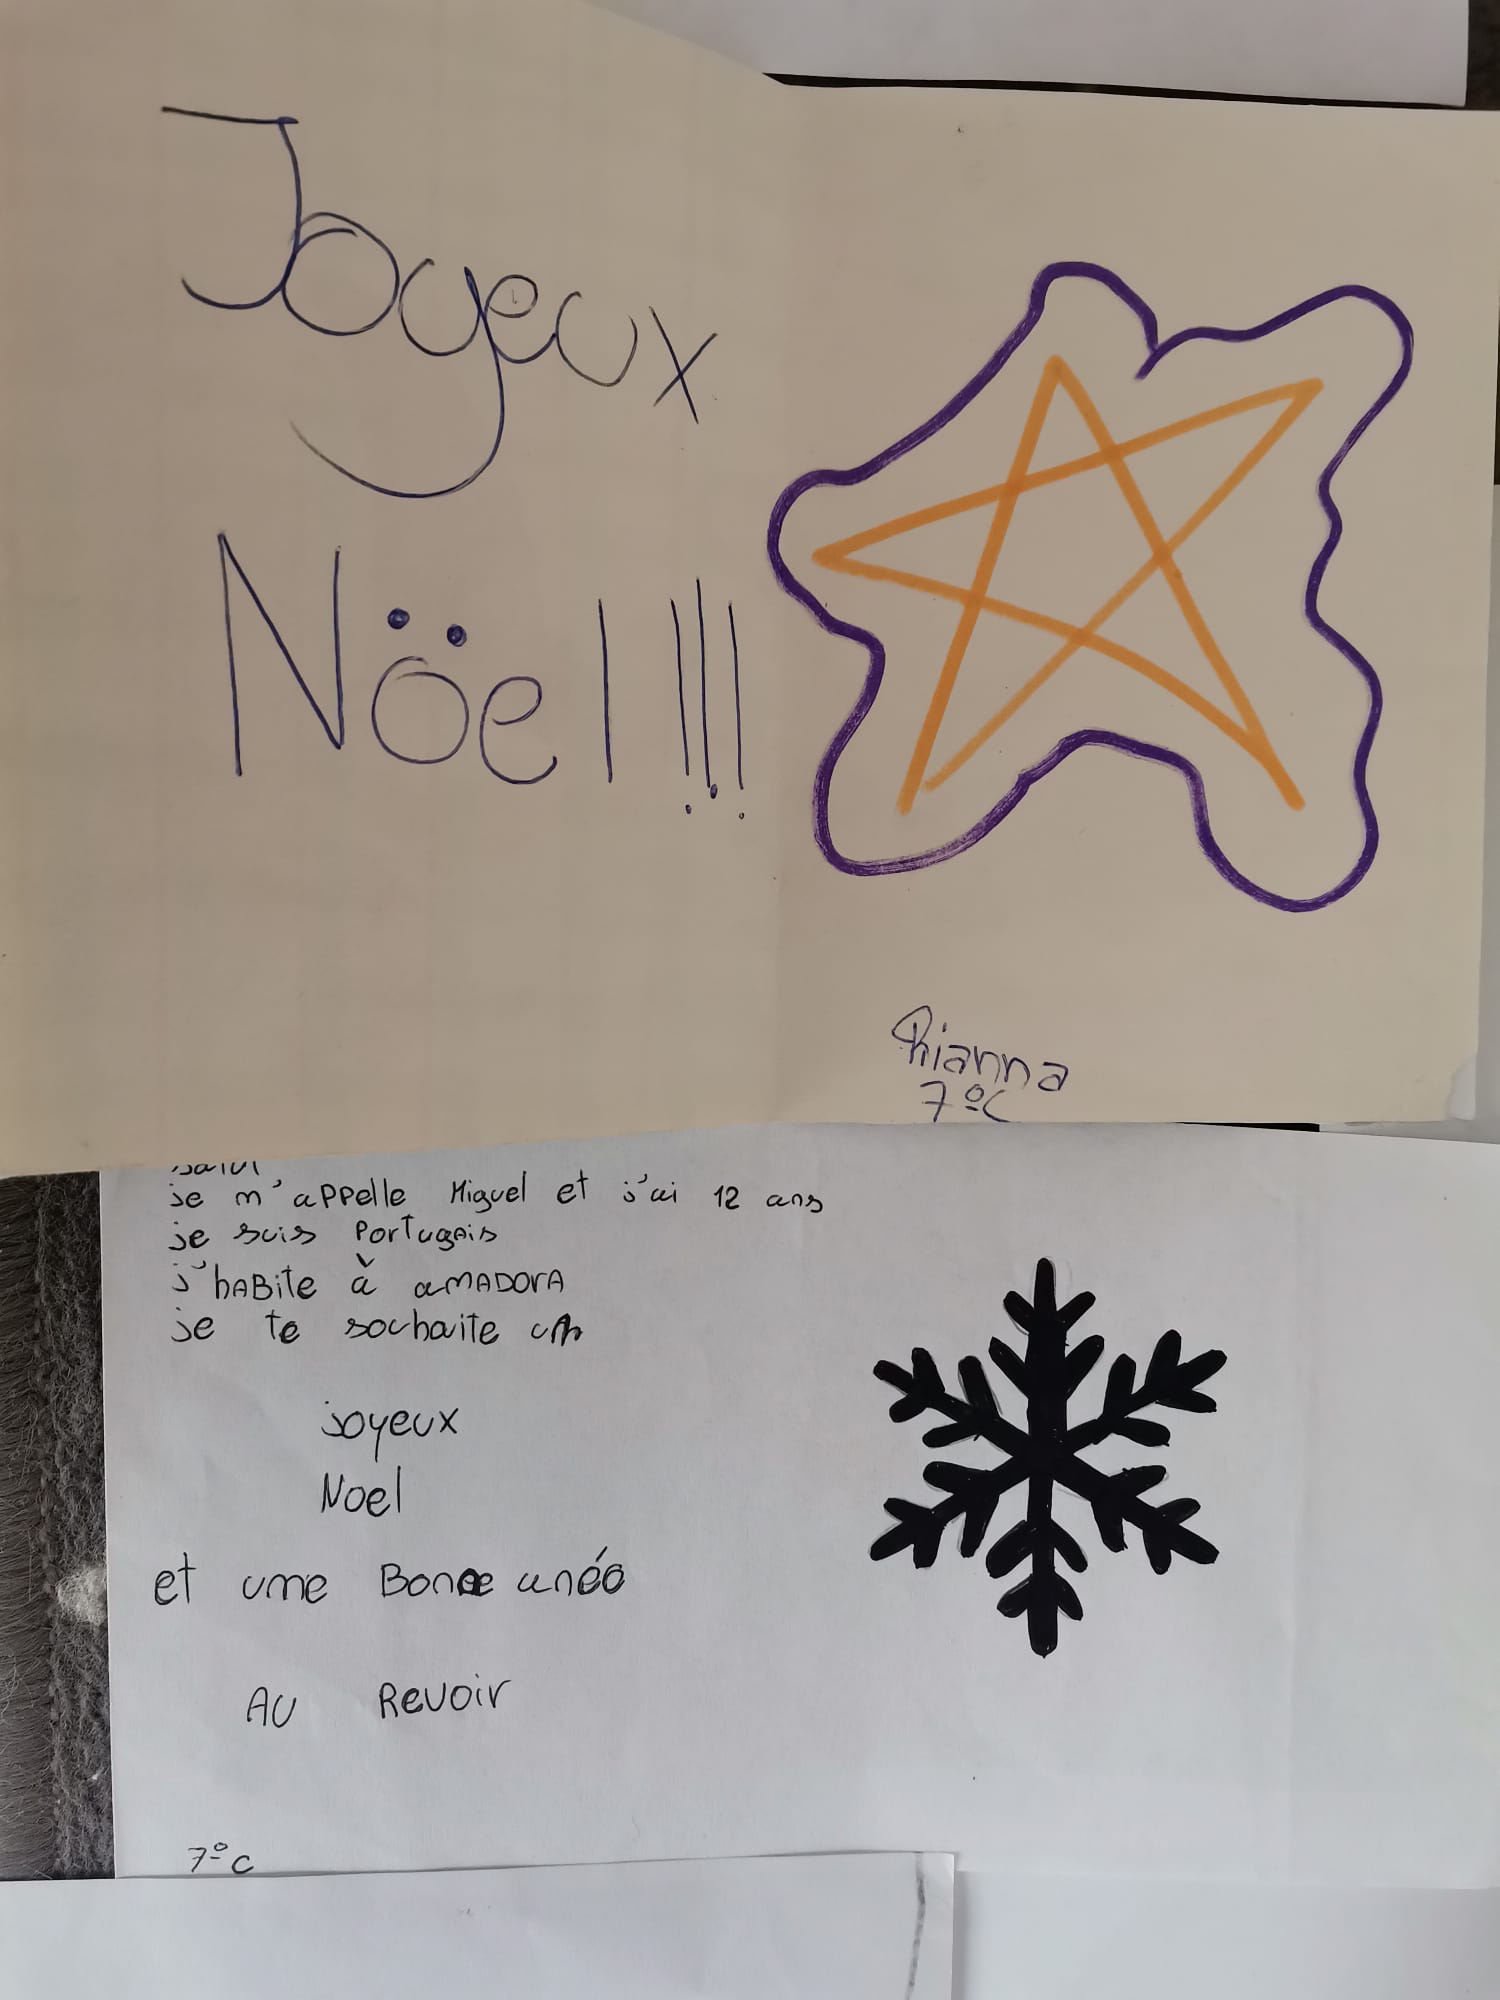 Joyeux
Nöel!!!
Rianna
7ºC
salut
je m'appelle Miguel et j'ai 12 ans
je suis Portugais
j'habite à amadora
je te souhaite un
joyeux
Noel
et une Bonne anéé
AU Revoir
7ºC